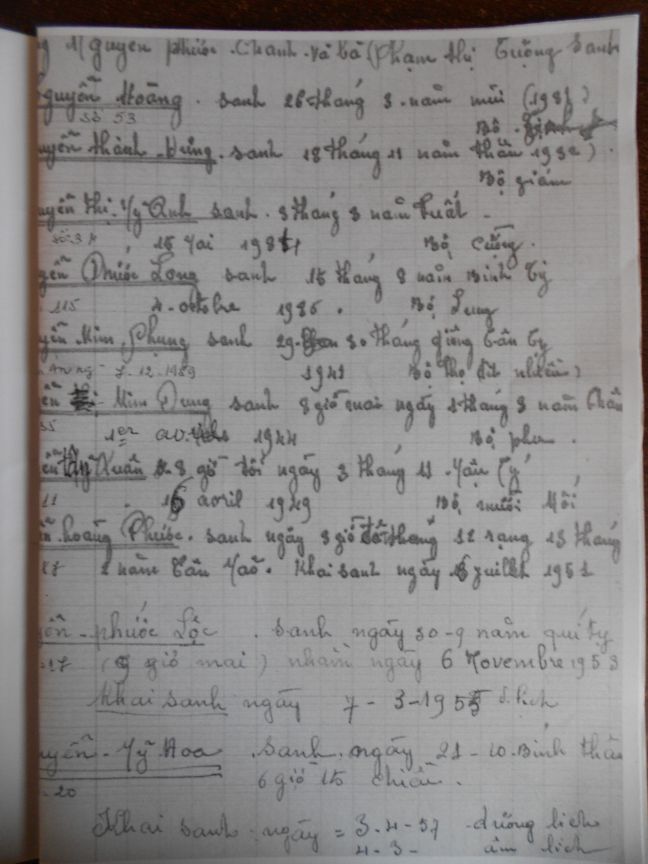 Nguyen phước Chanh và bà (Phạm thị Tường sanh
guyễn Hoàng. sanh 26 tháng 3 năm mùi (1931)
số 53
Bộ
uyễn thành Hưng. sanh 18 tháng 11 năm thân 1932)
Bộ giám
uyễn thị Mỹ Anh sanh. 3 tháng 3 năm tuất
15 Mai 1934 Bộ cường.
yễn Phước Long sanh 15 tháng 8 năm Bính Tý
115 4-octobre 1936. Bộ Lung
yễn Kim Phụng sanh 29 30 tháng giêng tân tỵ
7-12-1989 1941 Bộ thọ
ễn thị Kim Dung sanh 8 giờ mai ngày 1 tháng 3 năm thân
35 1er 1944 Bộ phu.
Xuân 8 giờ tối ngày 3 tháng 11 Mậu Tý
11 16 avril 1949 Bộ muối Mối
n hoàng Phước. sanh ngày 3 giờ tháng 12 rạng 13 tháng
2 năm tân Mão. Khai sanh ngày 16 juillet 1951
yễn-phước Lộc. sanh ngày 30-9 năm quí tỵ
-17 (9 giờ mai) nhằm ngày 6 Novembre 1953
Khai sanh ngày 7-3-1955 d. lịch
uyễn-Mỹ Hoa. Sanh. ngày 21-10 Bính thân
- 20 6 giờ 15 chiều.
Khai sanh ngày = 3-4-57 dương lịch
4-3- âm lịch